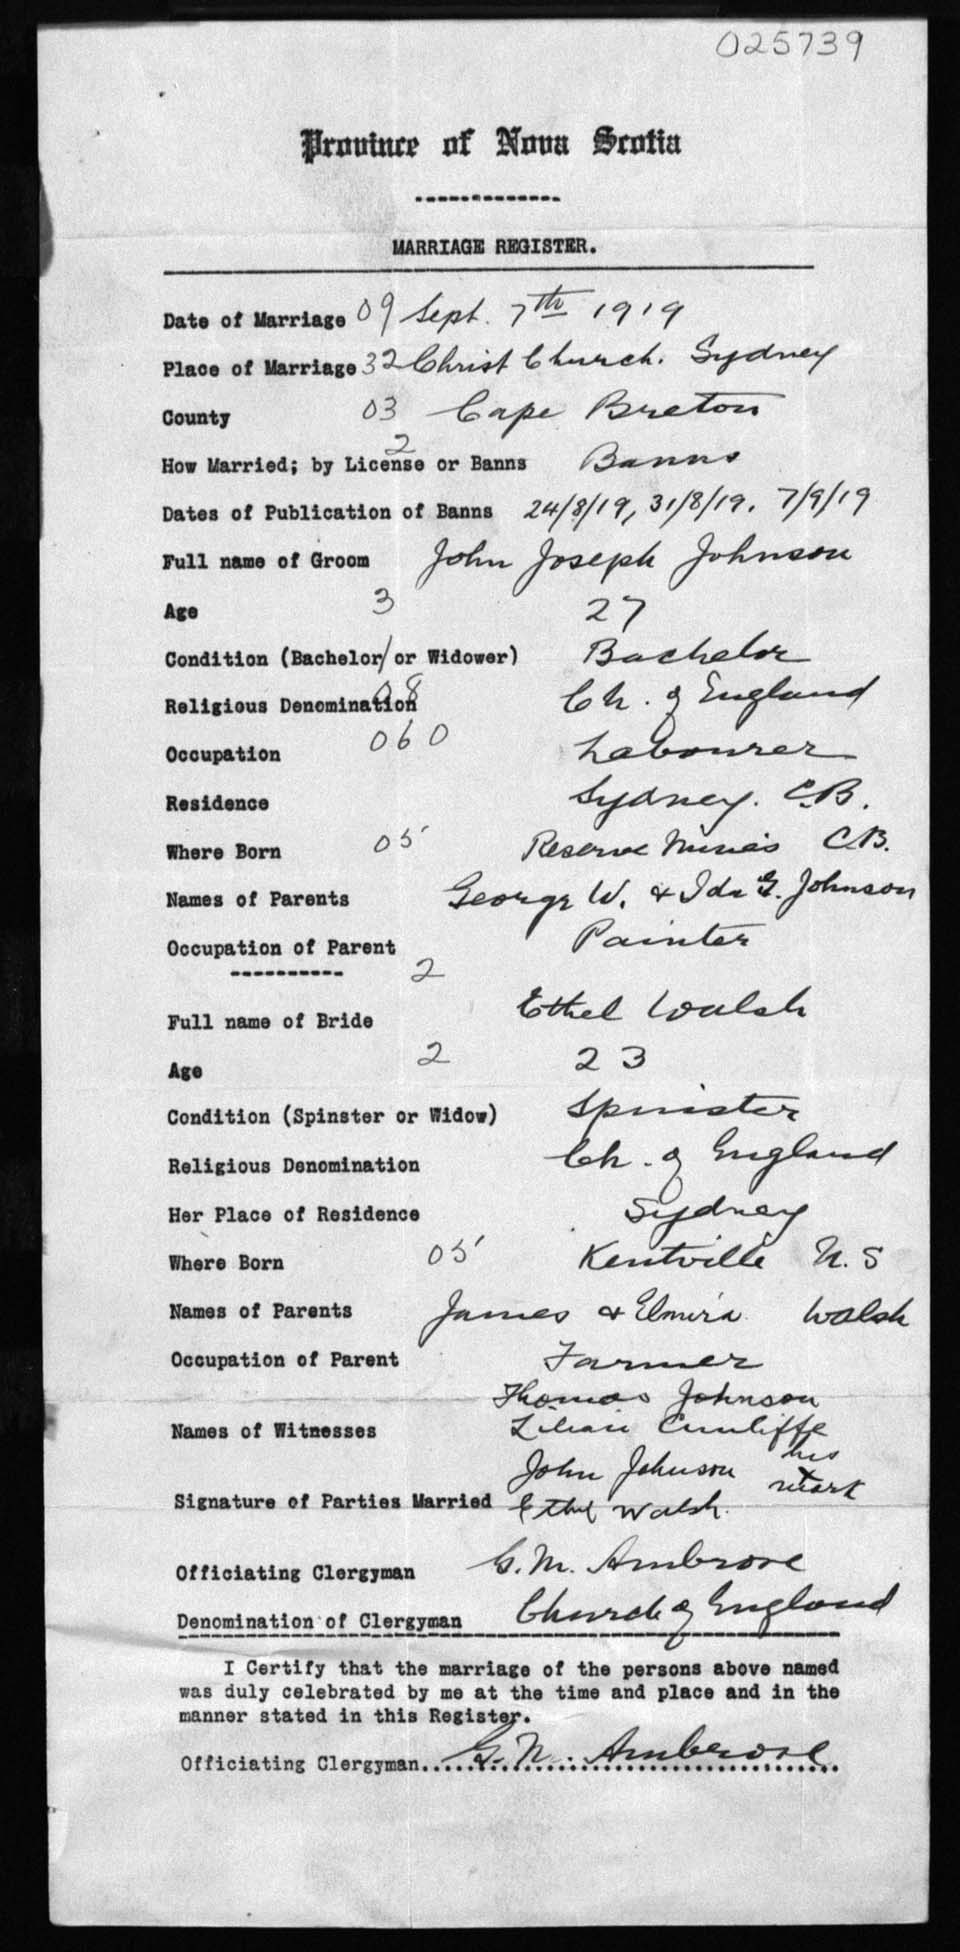 025739
Province of Nova Scotia
-------------
MARRIAGE REGISTER.
Date of Marriage 09 Sept. 7th 1919
Place of Marriage 32 Christ Church. Sydney
County 03 Cape Breton
2
How Married; by License or Banns Banns
Dates of Publication of Banns 24/8/19, 31/8/19. 7/9/19
Full name of Groom John Joseph Johnson
Age 3 27
Condition (Bachelor/or Widower) Bachelor
Religious Denomination 08 Ch. of England
Occupation 060 Labourer
Residence Sydney. C.B.
Where Born 05 Reserve Mines C.B.
Names of Parents George W. & Ida G. Johnson
Occupation of Parent Painter
---------- 2
Full name of Bride Ethel Walsh
Age 2 23
Condition (Spinster or Widow) Spinster
Religious Denomination Ch. of England
Her Place of Residence Sydney
Where Born 05 Kentville N.S
Names of Parents James & Elmira Walsh
Occupation of Parent Farmer
Thomas Johnson
Names of Witnesses Lilian Cunliffe
John Johnson his x mark
Signature of Parties Married Ethel Walsh.
Officiating Clergyman G. M. Ambrose
Denomination of Clergyman Church of England
I Certify that the marriage of the persons above named
was duly celebrated by me at the time and place and in the
manner stated in this Register.
Officiating Clergyman.. G. M. Ambrose